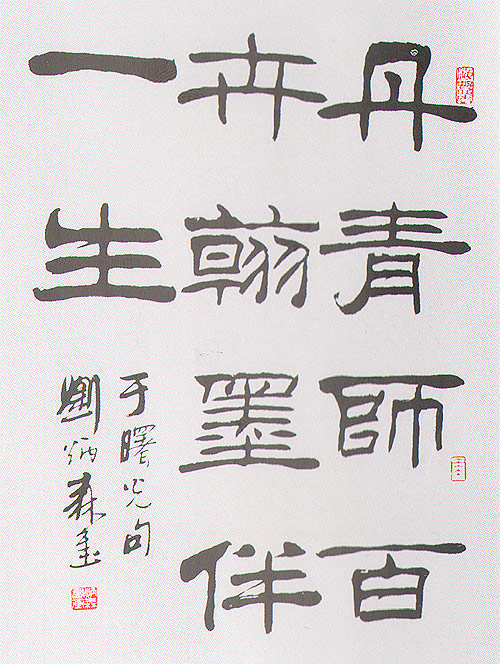 丹青師百
世翰墨伴
一生
于曙光句
劉炳森書